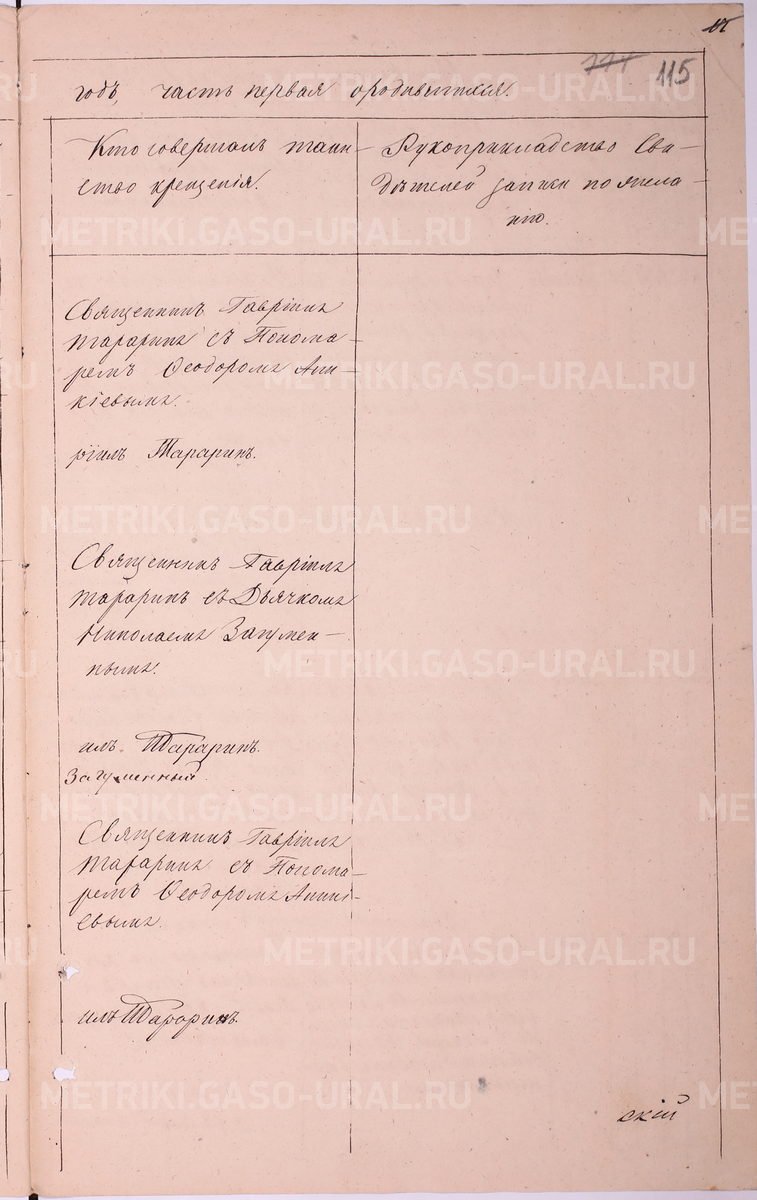 115
годъ, часть первая ородившихся.
Кто совершалъ таин-
ство крещенія.
Рукоприкладство Сви-
дѣтелей записи по жела-
нію.
Священникъ Гавріилъ
Тараринъ съ Понома-
ремъ Ѳеодоромъ Ани-
кіевымъ.
ріилъ Тараринъ.
Священникъ Гавріилъ
Тараринъ съ Дьячкомъ
Николаемъ Загумен-
нымъ.
илъ Тараринъ.
Загуменный.
Священникъ Гавріилъ
Тараринъ съ Понома-
ремъ Ѳеодоромъ Аникі-
евымъ.
илъ Тараринъ.
скій
METRIKI.GASO-URAL.RU